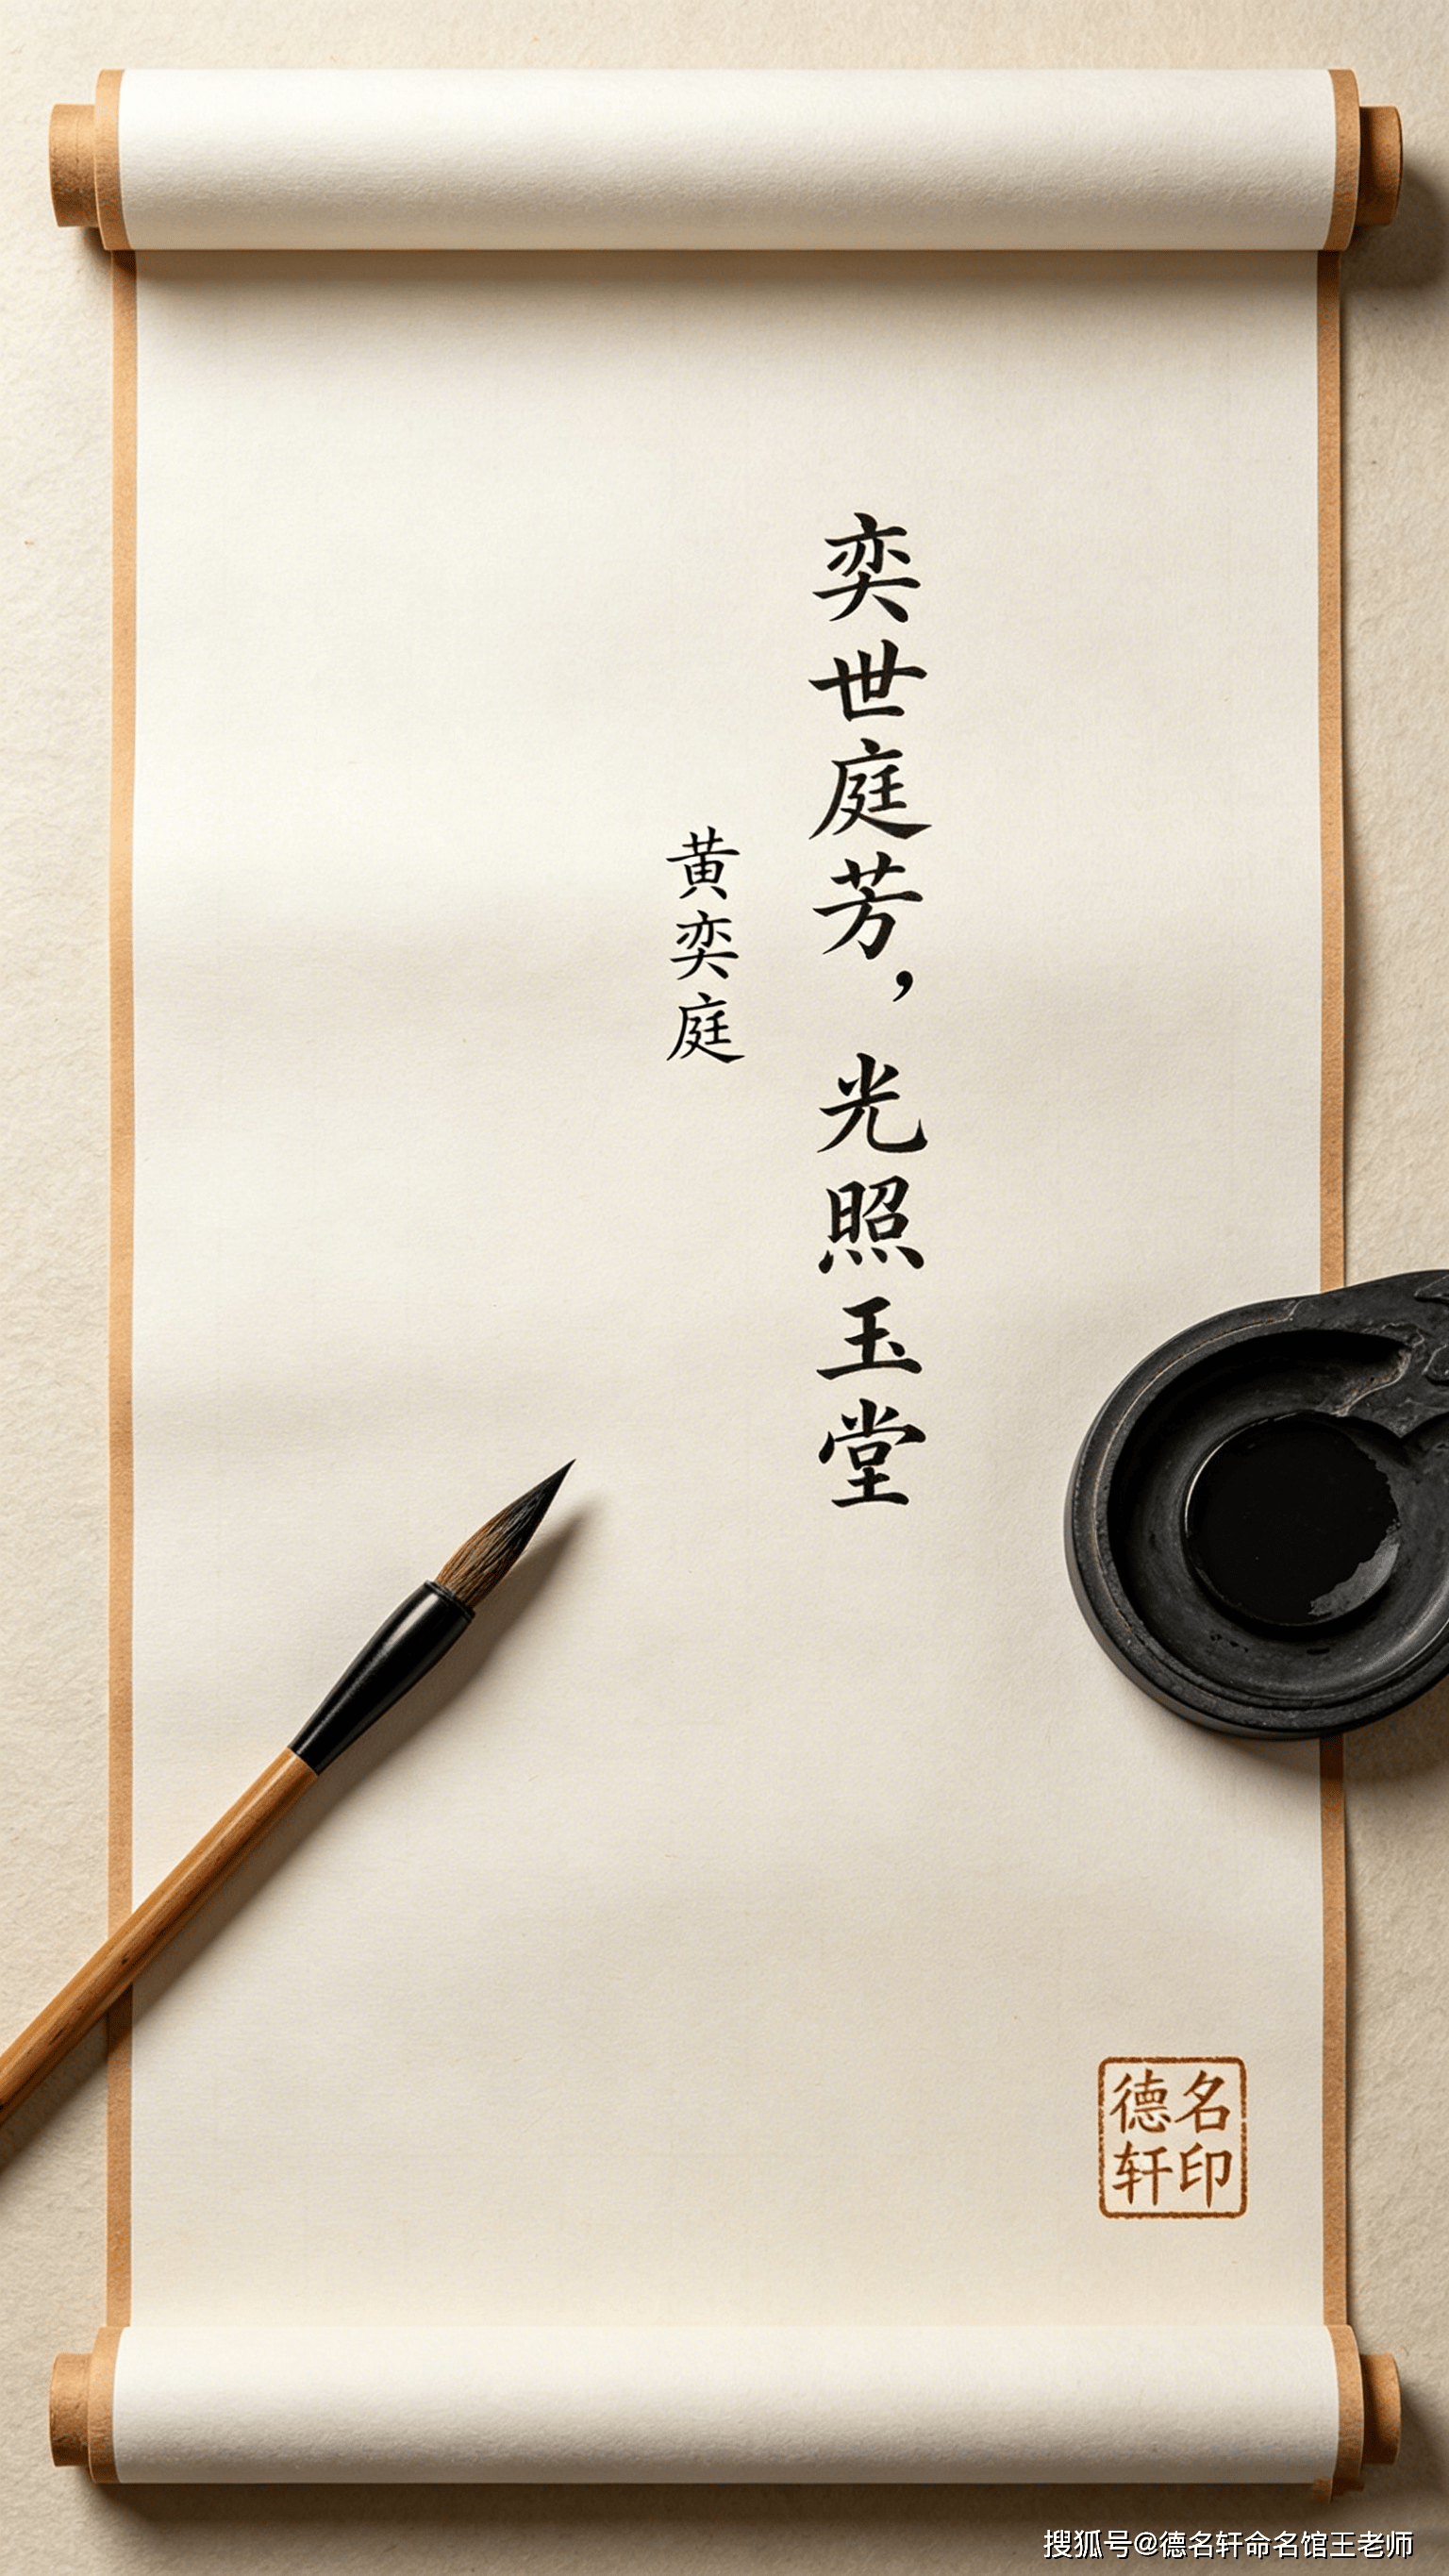 奕世庭芳，光照玉堂
黄奕庭
德名
轩印
搜狐号@德名轩命名馆王老师